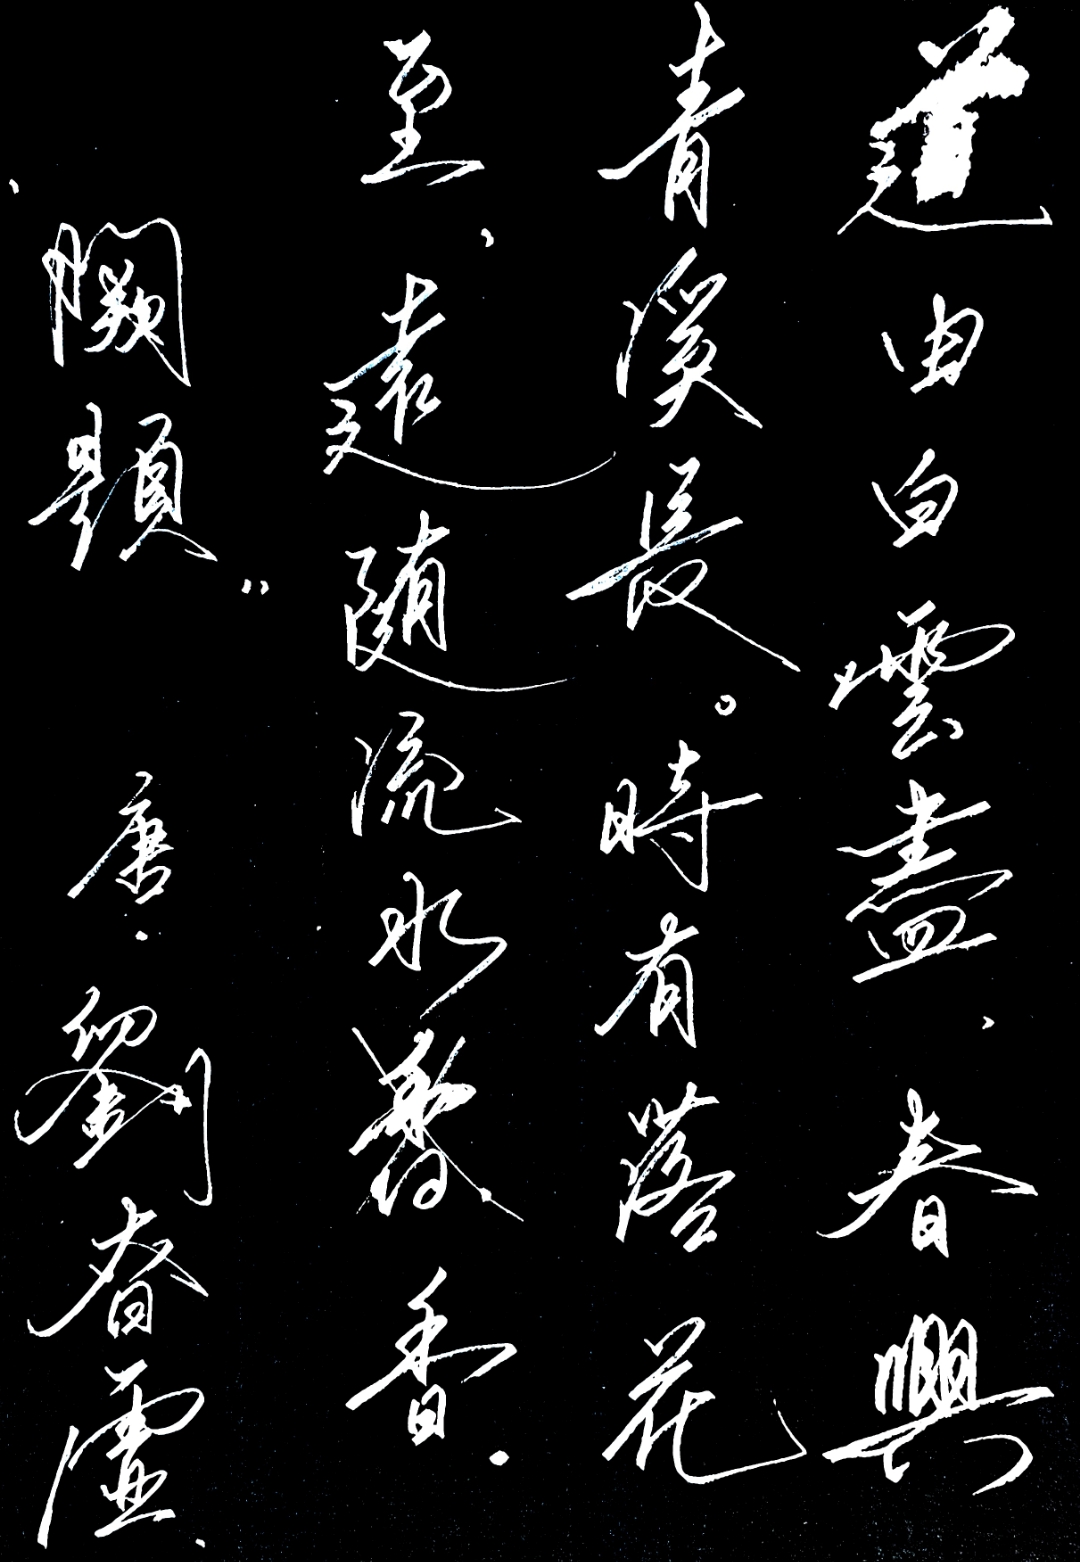 道由白雲盡、春與
青溪長。時有落花
至、遠随流水香.
闕題" 唐·劉眘虛.